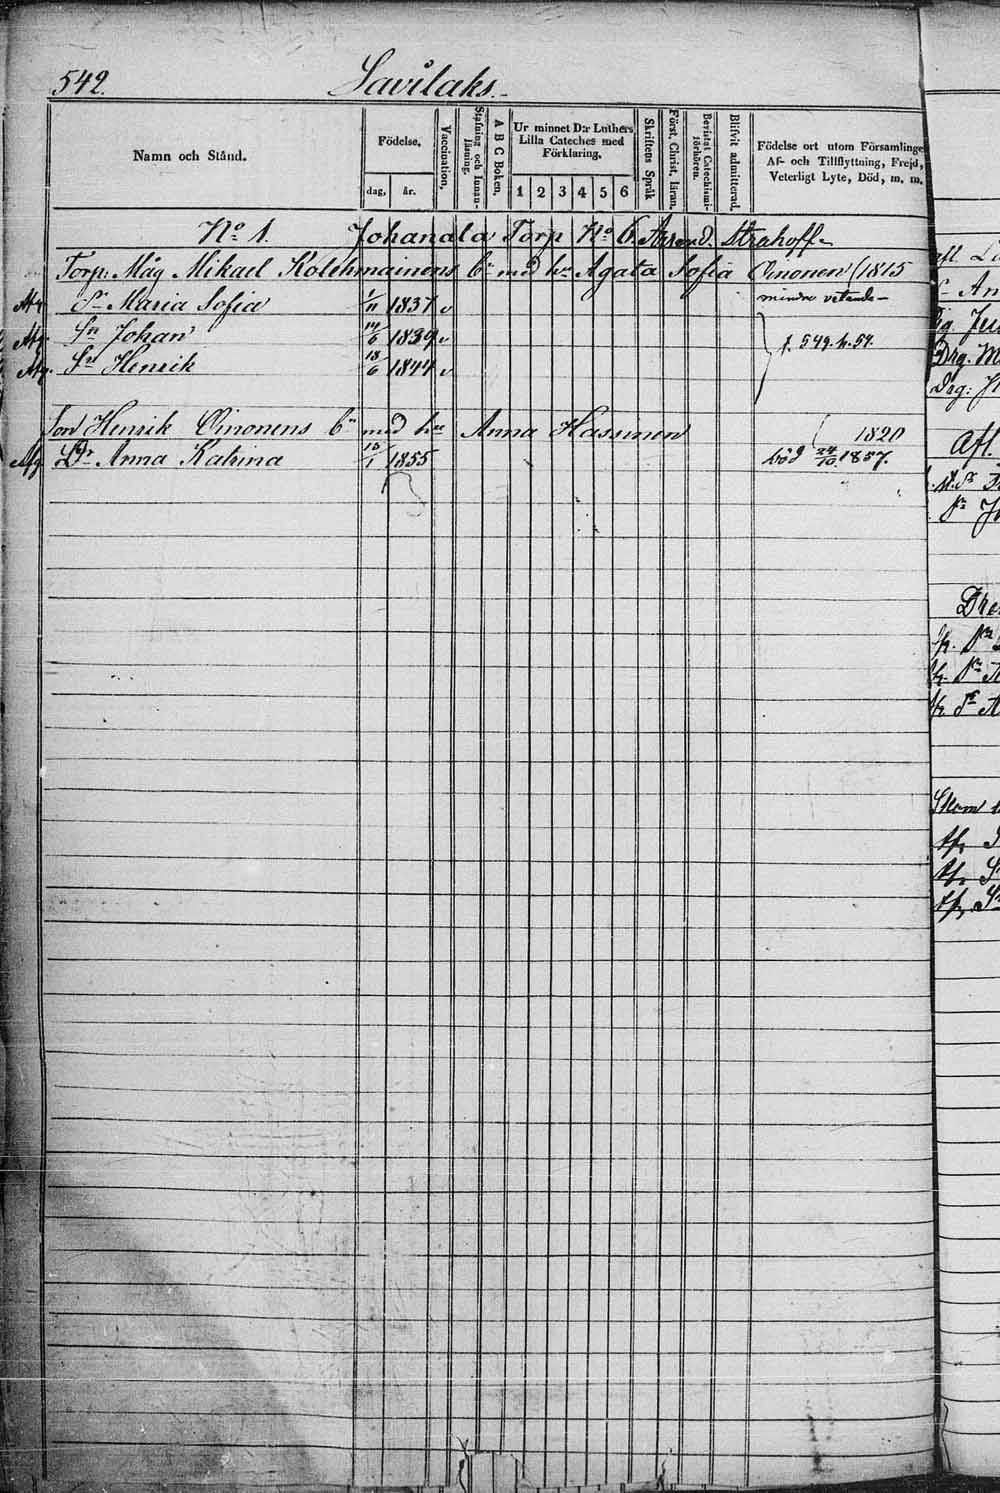 542. Savilaks.
Namn och Stånd.
Födelse.
dag. år.
Vaccination.
Stafning och Innanläsning.
A B C Boken.
Ur minnet D:r Luthers Lilla Cateches med Förklaring.
1 2 3 4 5 6
Skriftens Språk
Först. Christ. läran.
Bevistat Catechismiförhören.
Blifvit admitterad.
Födelse ort utom Församlingen, Af- och Tillflyttning, Frejd, Veterligt Lyte, Död, m. m.
No 1. Johanala Torp No 6. Arrend. Strahoff
Torp. Måg Mikael Kolehmainens b:n med h:u Agata Sofia Oinonen (1815
Afg. Dr Maria Sofia 1/11 1837 v mindre vetande
Afg. Sn Johan 14/6 1839 v f. 549. h. 54.
Afg. Sn Henrik 18/6 1844 v
Son Henrik Oinonens b:n med h:u Anna Hassinen 1820
Afg Dr Anna Katrina 15/1 1855 död 24/10 1857.